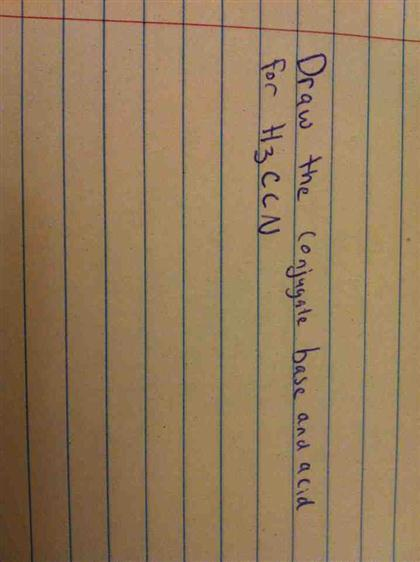 Draw the conjugate base and acid
for H3CCN